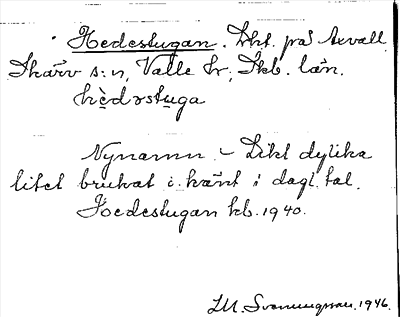 Hedestugan. Lht. på Axvall
Skärv s:n, Valle hr, Skb. län.
hèdəstuga
Nynamn - Likt dylika
litet brukat i. känt i dagl. tal.
Hedestugan kb. 1940.
I.M. Svenningsson. 1946.